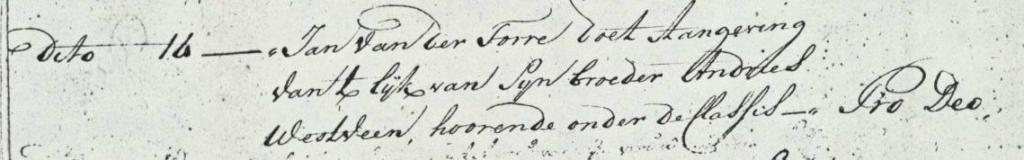 Dito 14 — Jan van der Torre doet Aangeving
van't lijk van Syn broeder Andries
Westveen, hoorende onder de Classis — Pro Deo.